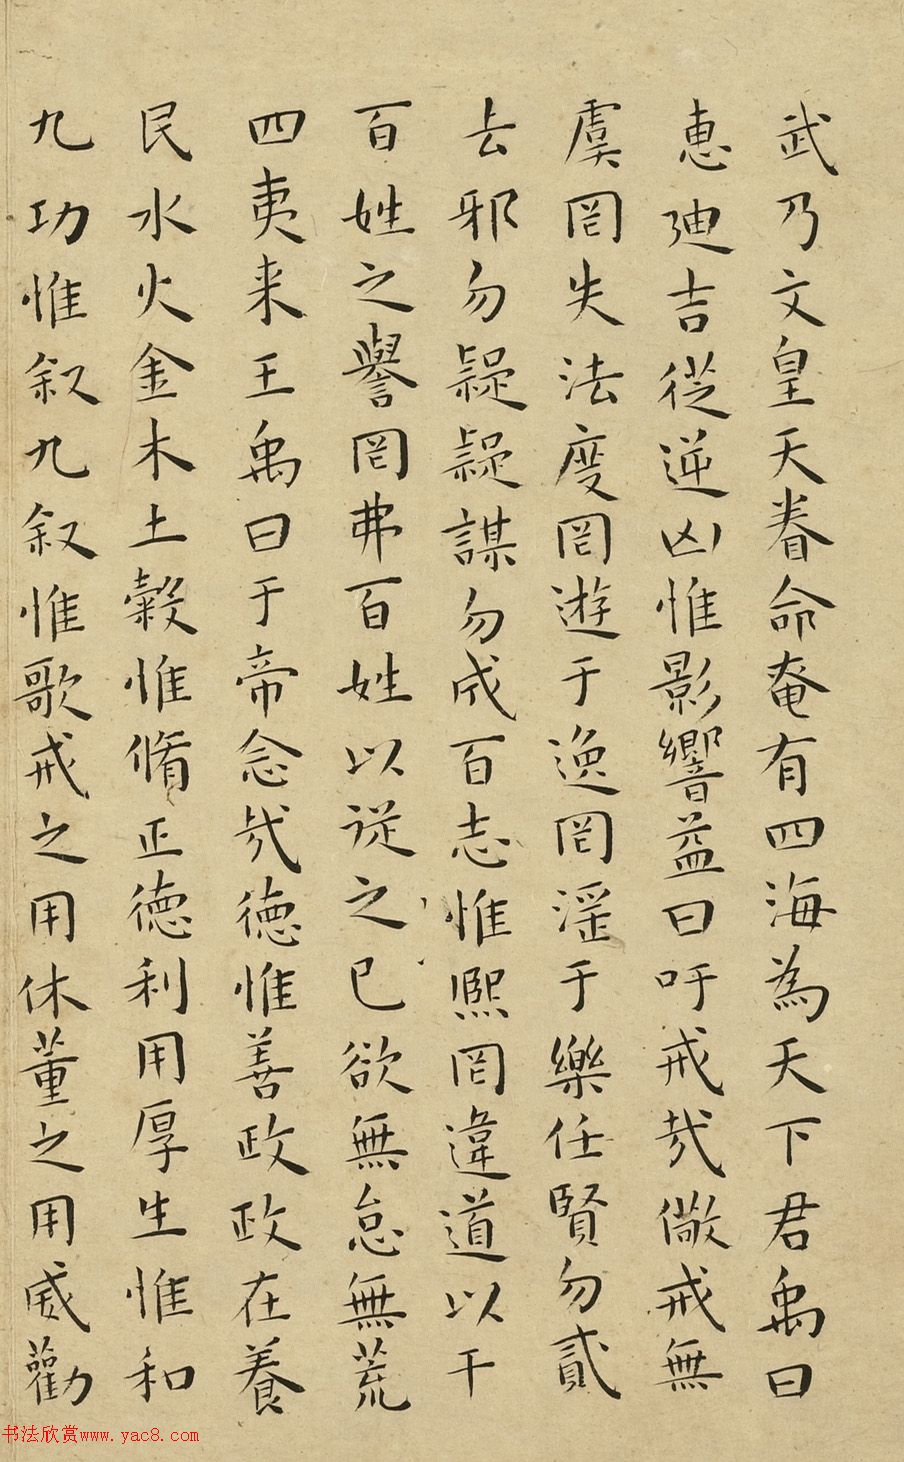 武乃文皇天眷命奄有四海為天下君禹曰
惠迪吉從逆凶惟影響益曰吁戒㢤儆戒無
虞罔失法度罔遊于逸罔淫于樂任賢勿貳
去邪勿疑疑謀勿成百志惟熙罔違道以干
百姓之譽罔弗百姓以從之己欲無怠無荒
四夷来王禹曰于帝念㢤德惟善政政在養
民水火金木土穀惟脩正德利用厚生惟和
九功惟叙九叙惟歌戒之用休董之用威勸
书法欣赏www.yac8.com